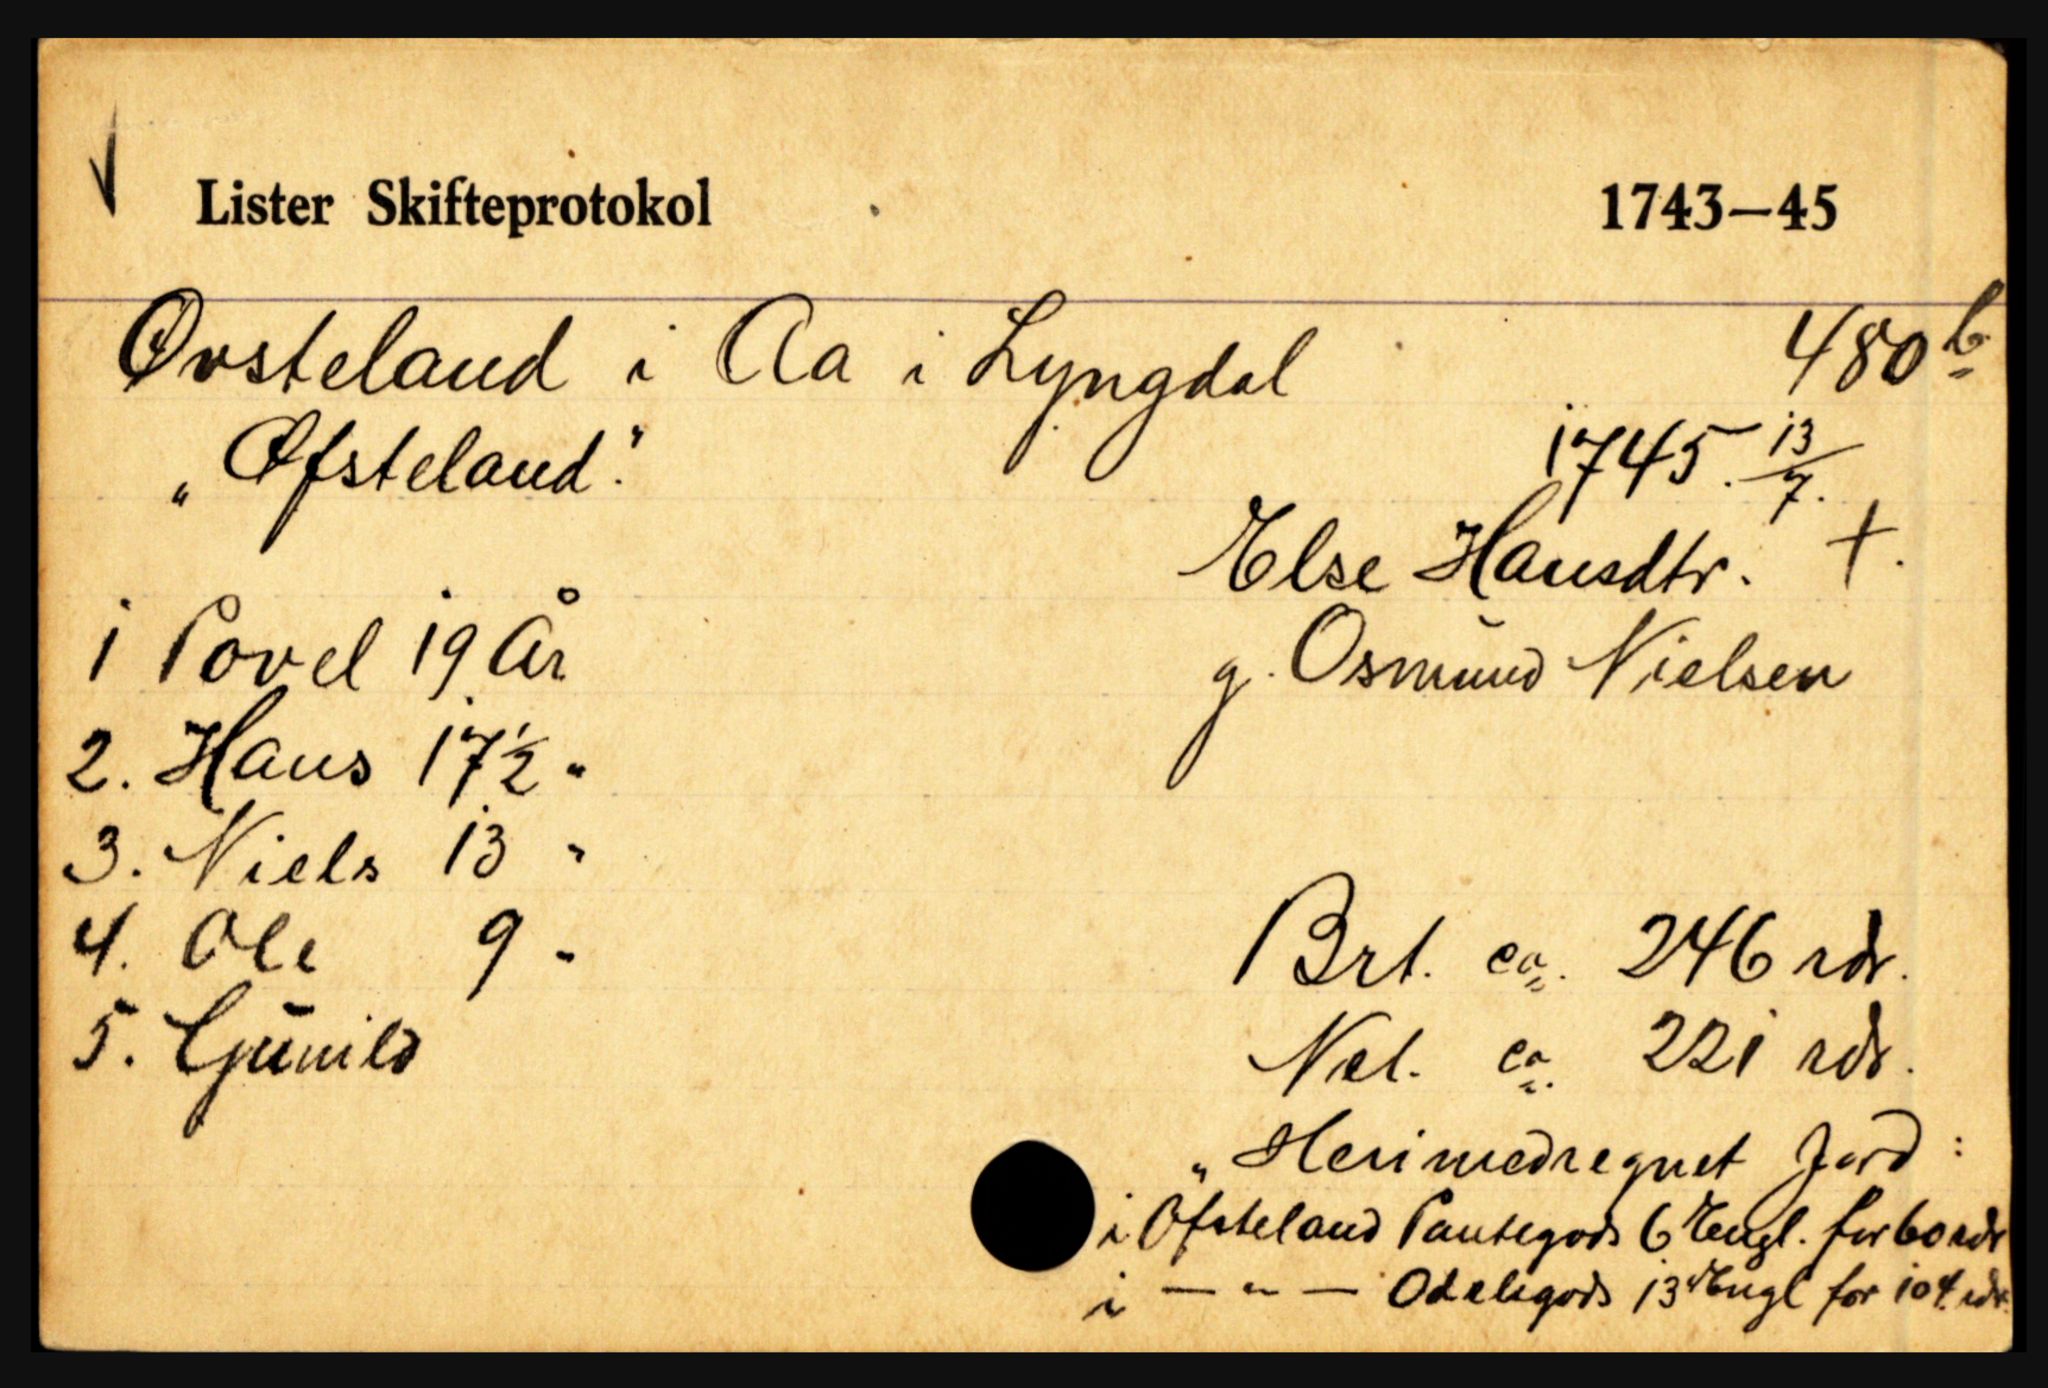 Lister Skifteprotokol 1743–45
Øvsteland i Aa i Lyngdal 480 b.
„Øfsteland". 1745. 13/7.
Else Hansdtr. †.
g. Osmund Nielsen
1 Povel 19 År
2. Hans 17 1/2 "
3. Niels 13 "
4. Ole 9 "
5. Gunild
Brt. ca. 246 rdr.
Net. ca. 221 rdr.
„Heri medregnet Jord:
i Øfsteland Pantegods 6 Engl. for 60 rdr
i — " — Odelsgods 13 Engl for 104 rdr.